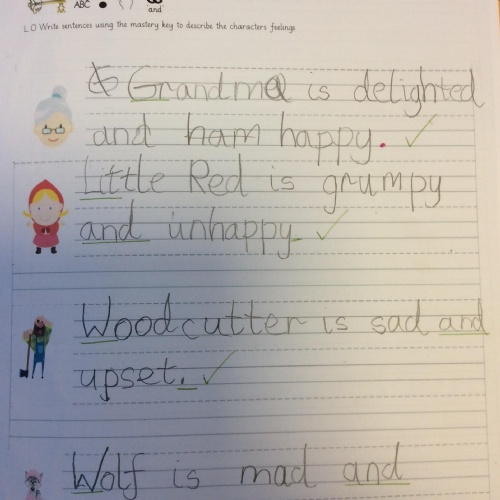 ABC
and
L.O Write sentences using the mastery key to describe the characters feelings
Grandma is delighted
and ham happy.
Little Red is grumpy
and unhappy.
Woodcutter is sad and
upset.
Wolf is mad and